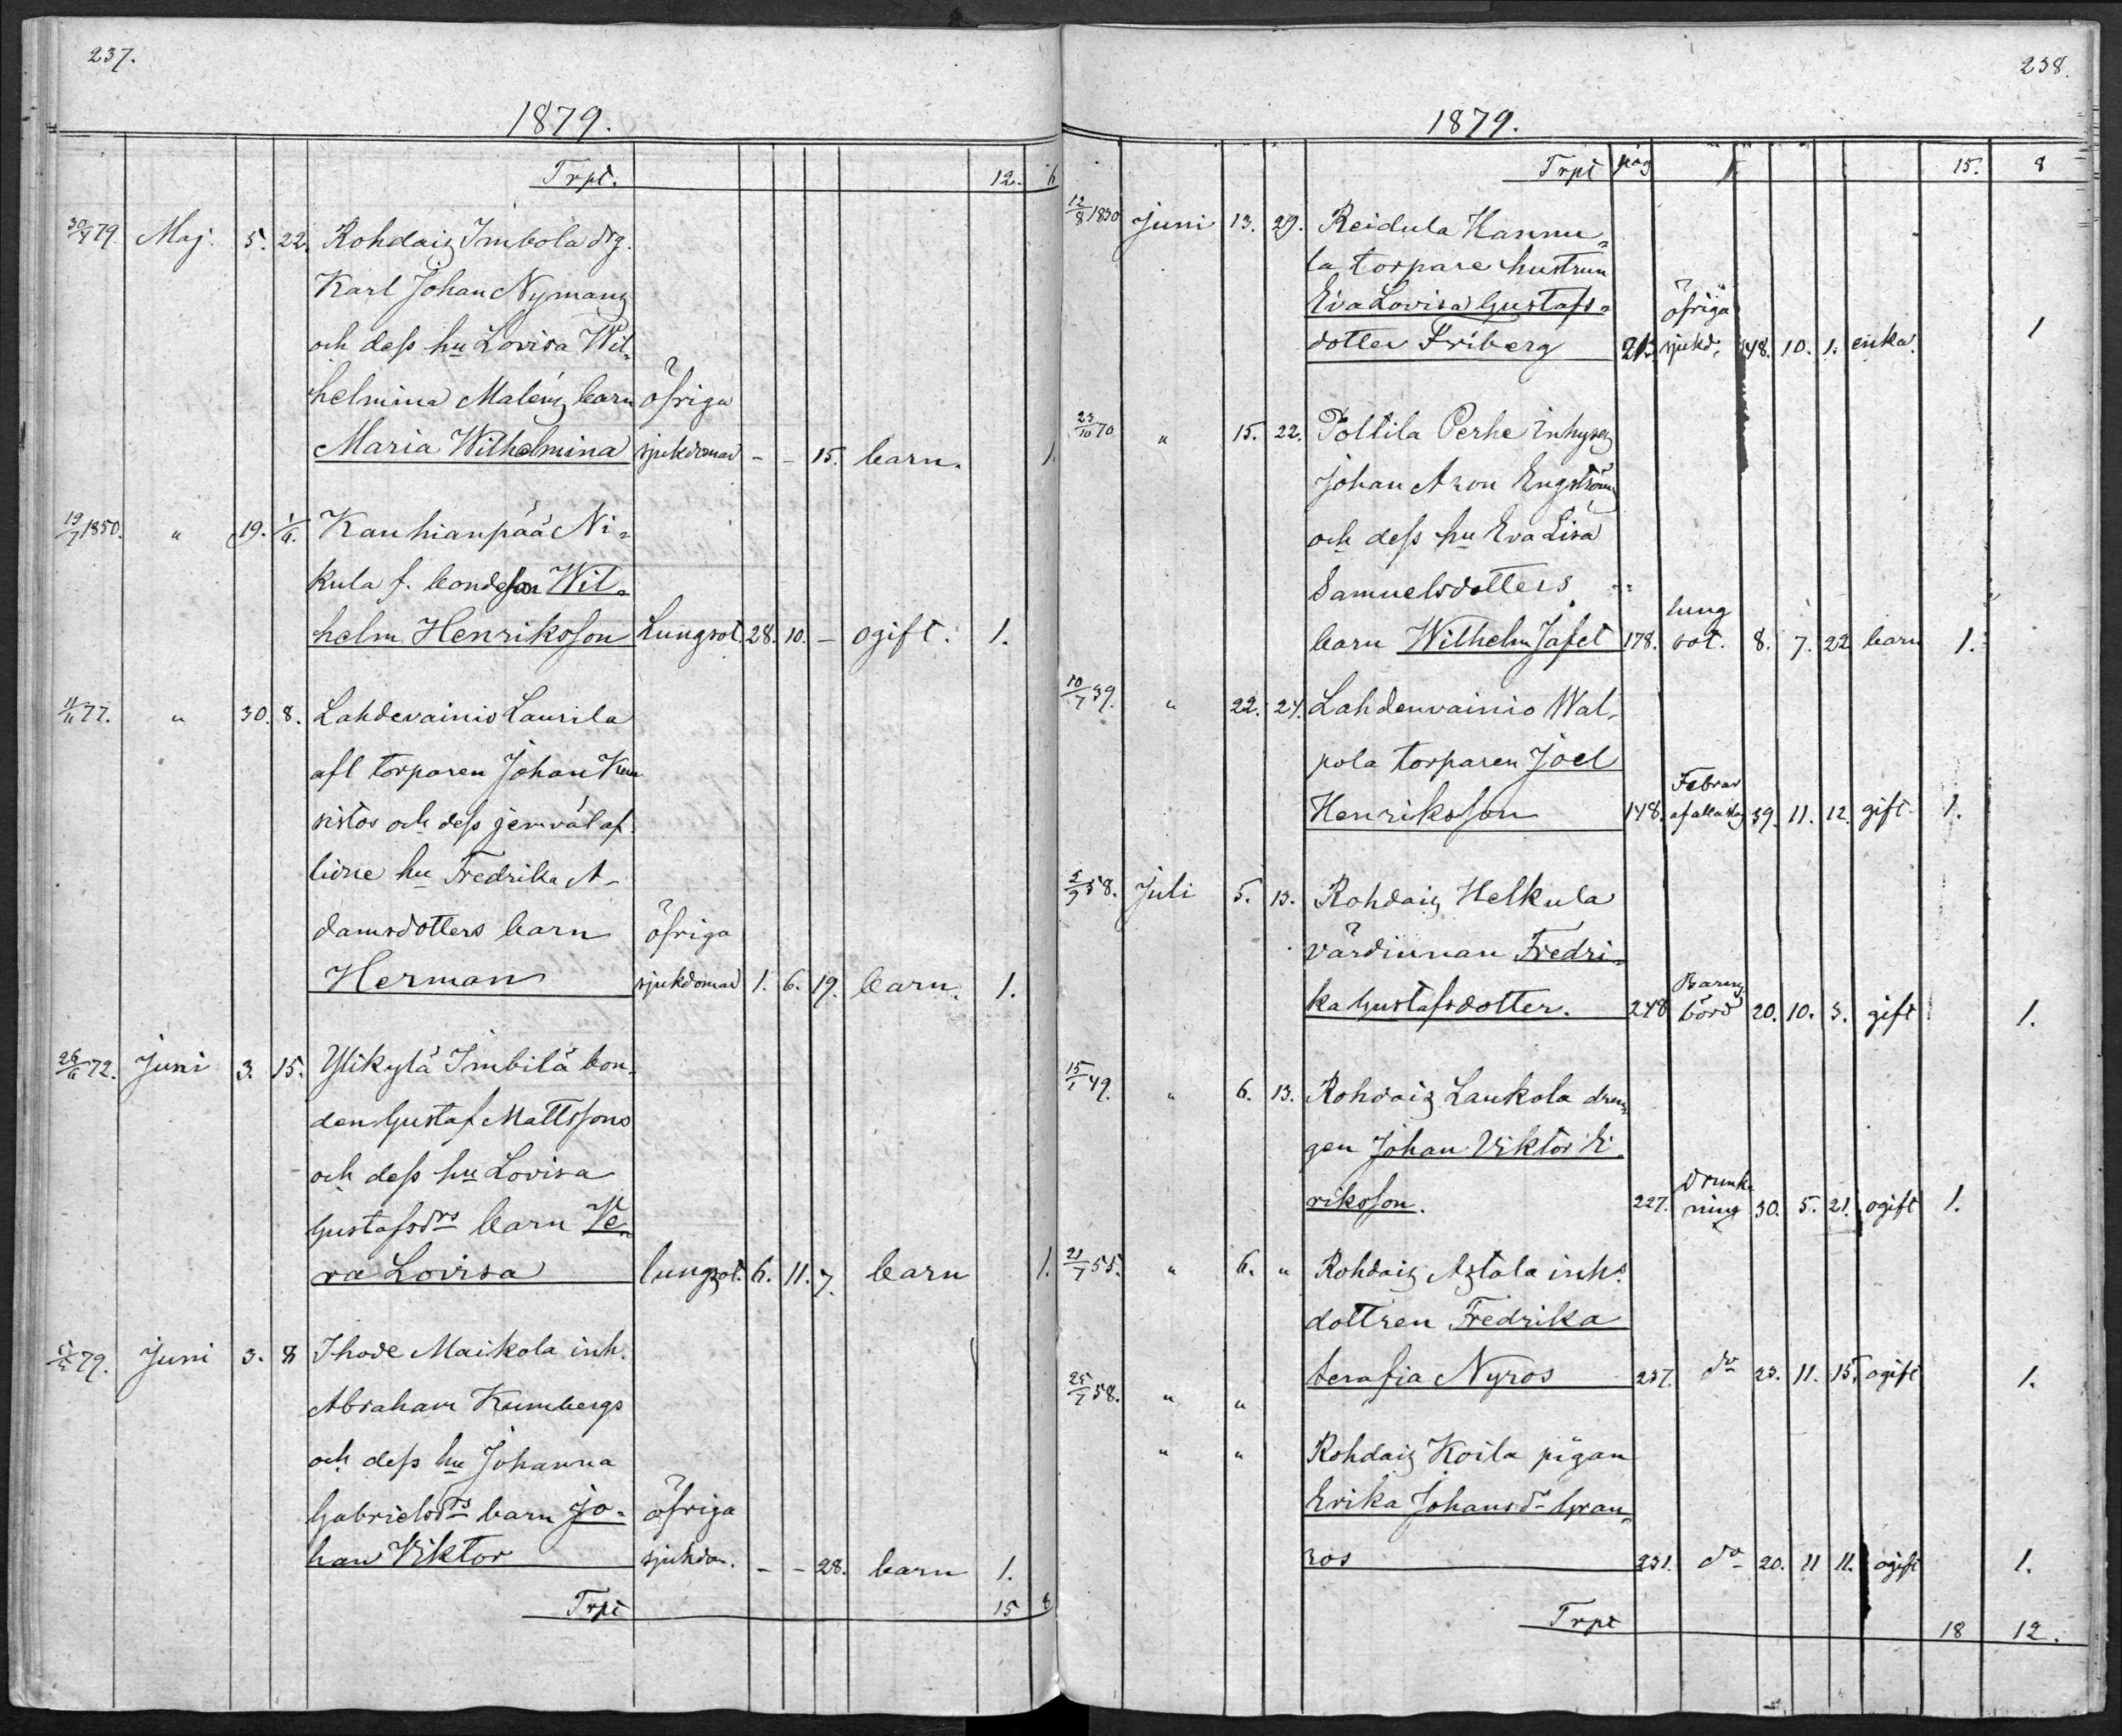 237.
1879.
Trpt. 12. 6
30/4 79. Maj. 5. 22. Rohdais Imbola drg.
Karl Johan Nymans
och dess hu Lovisa Wil-
helmina Maléns barn öfriga
Maria Wilhelmina sjukdomar - - 15. barn. 1.
19/7 1850. " 19. 1/6. Kauhianpää Ni-
kula f. bondeson Wil-
helm Henriksson Lungsot. 28. 10. - ogift. 1.
11/11 77. " 30. 8. Lahdevainio Laurila
afl torparen Johan
sistos och dess jemväl af-
lidne hu Fredrika A-
damsdotters barn öfriga
Herman sjukdomar 1. 6. 19. barn. 1.
26/6 72. Juni 3. 15. Ylikylä Imbilä bon-
den Gustaf Mattssons
och dess hu Lovisa
Gustafsdrs barn Ve-
ra Lovisa lungsot. 6. 11. 7. barn 1.
79. Juni 3. 8 Ihode Maikola inh.
Abraham Kumbergs
och dess hu Johanna
Gabrielsdrs barn Jo- öfriga
han Viktor sjukdom. - - 28. barn 1.
Trpt 15 8
238.
1879.
Trpt pag 15. 8
12/8 1830 Juni 13. 29. Reidula Hannu-
la torpare hustrun
Eva Lovisa Gustafs- öfriga
dotter Friberg 213. sjukd. 48. 10. 1. enka. 1
23/10 70 " 15. 22. Polttila Perhe Inhyses
Johan Aron Engströms
och dess hu Eva Lisa
Samuelsdotters lung
barn Wilhelm Jafet 178. sot. 8. 7. 22 barn 1.
10/7 39. " 22. 24. Lahdenvainio Wal-
pola torparen Joel Febrar
Henriksson 148. af alla slag 39. 11. 12. gift 1.
2/9 58. Juli 5. 13. Rohdais Helkula
värdinnan Fredri- Barns
ka Gustafsdotter. 248 börd 20. 10. 3. gift 1.
15/1 49. " 6. 13. Rohdais Laukola dren-
gen Johan Viktor E- Drunk-
riksson. 227. ning 30. 5. 21. ogift 1.
21/7 55. " 6. " Rohdais Astala inhs
dottren Fredrika
Serafia Nyros 237. do 23. 11. 15. ogift 1.
25/7 58. " "
" " Rohdais Koila pigan
Erika Johansdr Gran-
ros 231. do 20. 11 11. ogift 1.
Trpt 18 12.